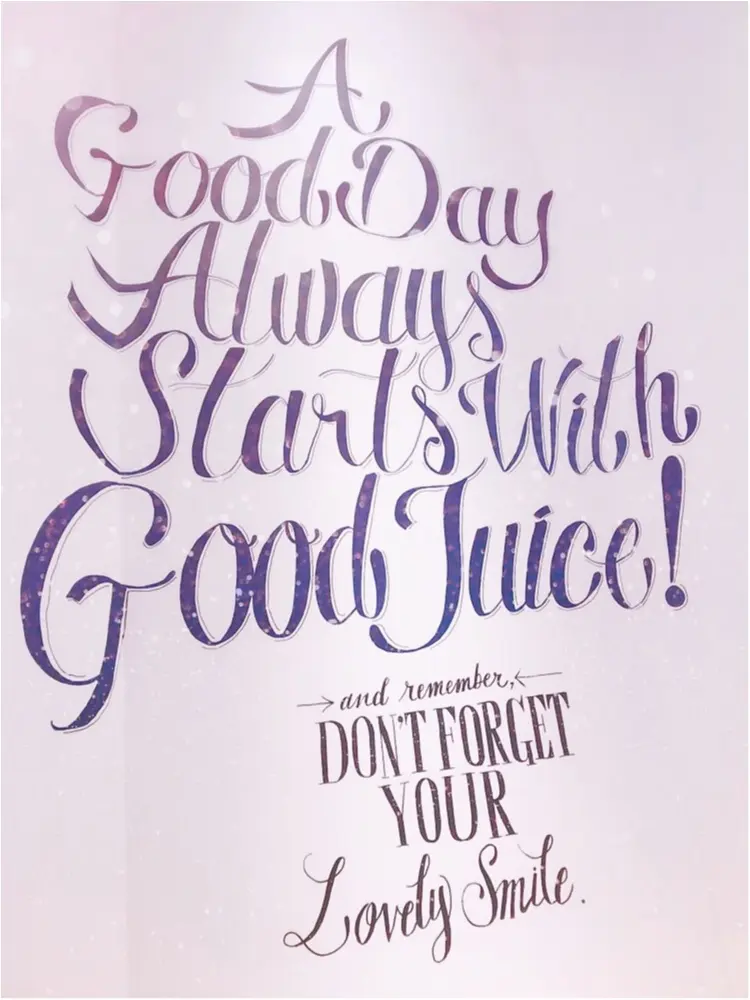 A
Good Day
Always
Starts With
Good Juice!
and remember,
DON'T FORGET
YOUR
Lovely Smile.